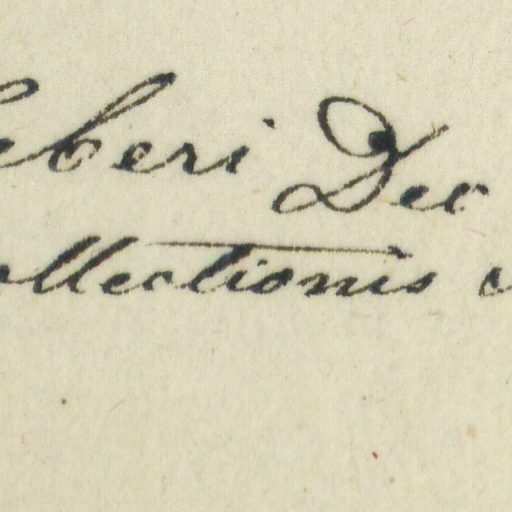 eberi Dec
ollectionis